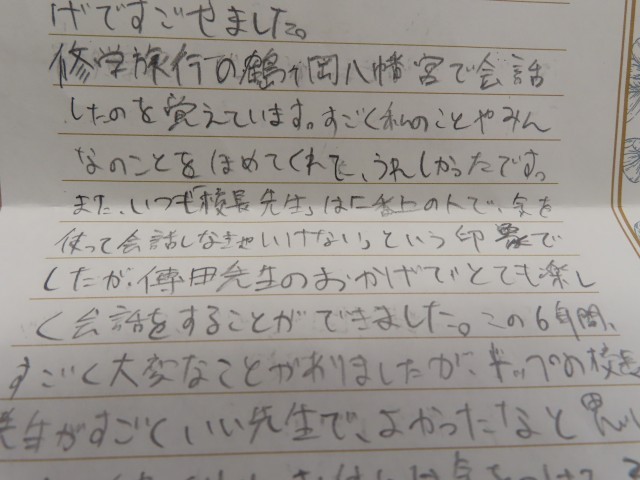 げですごせました。
修学旅行の鶴ヶ岡八幡宮で会話
したのを覚えています。すごく私のことやみん
なのことをほめてくれて、うれしかったです。
また、いつも「校長先生」は「一番上の人で、気を
使って会話しなきゃいけない」という印象で
したが、傳田先生のおかげでとても楽し
く会話をすることができました。この6年間、
すごく大変なことがありましたが、の校長
先生がすごくいい先生で、よかったなと思い